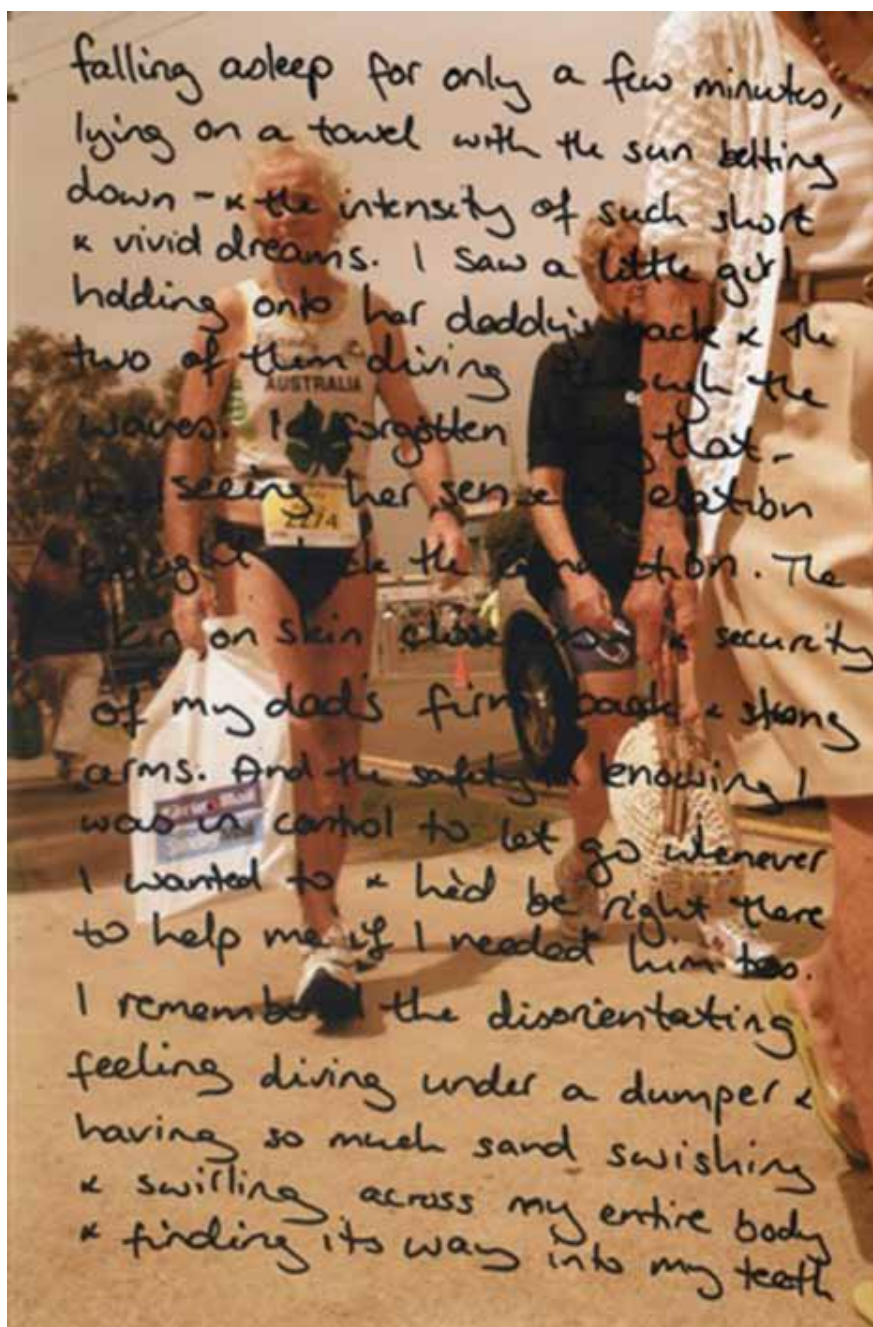 falling asleep for only a few minutes,
lying on a towel with the sun belting
down - & the intensity of such short
& vivid dreams. I saw a little girl
holding onto her daddy's back & the
two of them diving through the
waves. I'd forgotten that -
seeing her sense of elation
brought the connection. The
skin on skin closeness & security
of my dad's firm back & strong
arms. And the safety in knowing I
was in control to let go whenever
I wanted to & he'd be right there
to help me if I needed him too.
I remembered the disorientating
feeling diving under a dumper &
having so much sand swishing
& swirling across my entire body
& finding its way into my teeth
AUSTRALIA
2274